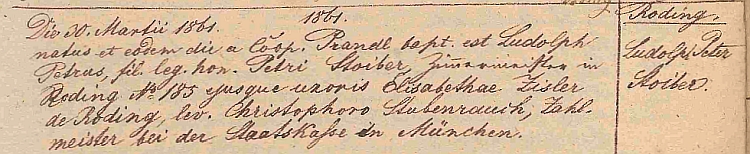 1861.
Roding.
Die 30. Martii 1861.
natus et eodem die a Coop. Prandl bapt. est Ludolph
Petrus, fil. leg. hon. Petri Stoiber, Zimmermeister in
Roding No 185 ejusque uxoris Elisabethae Zisler
de Roding, lev. Christophoro Stubenrauch, Zahl-
meister bei der Staatskasse in München.
Ludolph Peter
Stoiber.